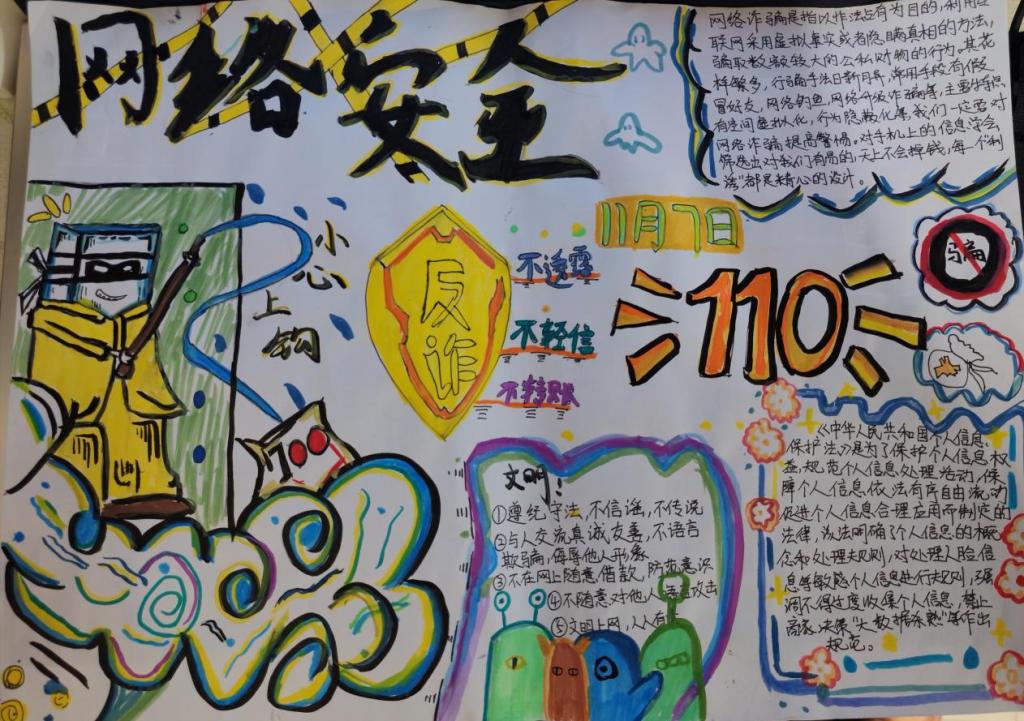 网络安全
网络诈骗是指以非法占有为目的,利用互
联网采用虚拟事实或者隐瞒真相的方法,
骗取数额较大的公私财物的行为。其花
样繁多,行骗手法日新月异,常用手段有假
冒好友,网络钓鱼,网络升级诈骗等,主要特点
有空间虚拟化,行为隐蔽化等,我们一定要对
网络诈骗提高警惕。对手机上的信息学会
筛选出对我们有易的,天上不会掉钱,每一个"利
诱"都是精心的设计。
小心
上钩
100
反诈
不透露
不轻信
不转账
11月7日
110
骗
文明:
①遵纪守法,不信谣,不传说
②与人交流真诚友善,不语言
欺骗,侮辱他人形象
③不在网上随意借款,防范意识
④不随意对他人 攻击
⑤文明上网,人人有
《中华人民共和国个人信息
保护法》是为了保护个人信息权
益,规范个人信息处理活动,保
障个人信息依法有序自由流动
促进个人信息合理应用而制定的
法律,该法明确了个人信息的概
念和处理规则,对处理人脸信
息等敏感个人信息进行规则,强
调不得过度收集个人信息,禁止
商家决策"大数据杀熟"等作出
规范。